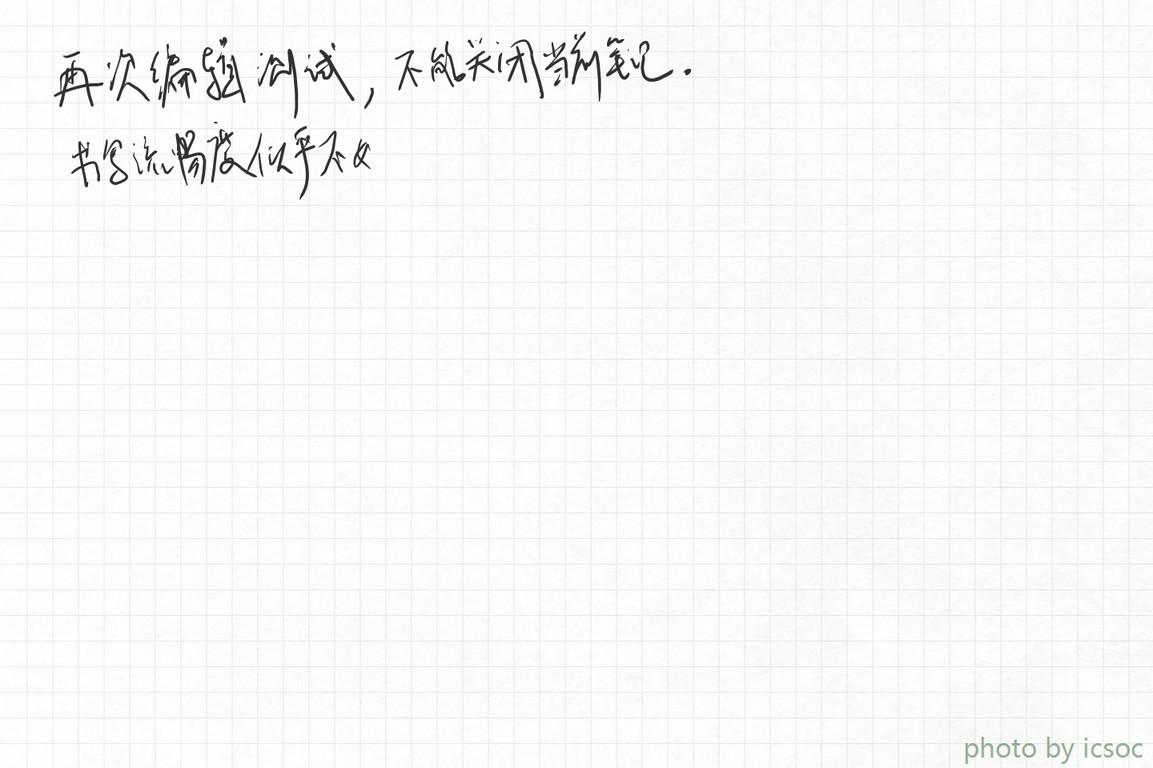 再次编辑测试，不能关闭当前笔记.
书写流畅度似乎不
photo by icsoc